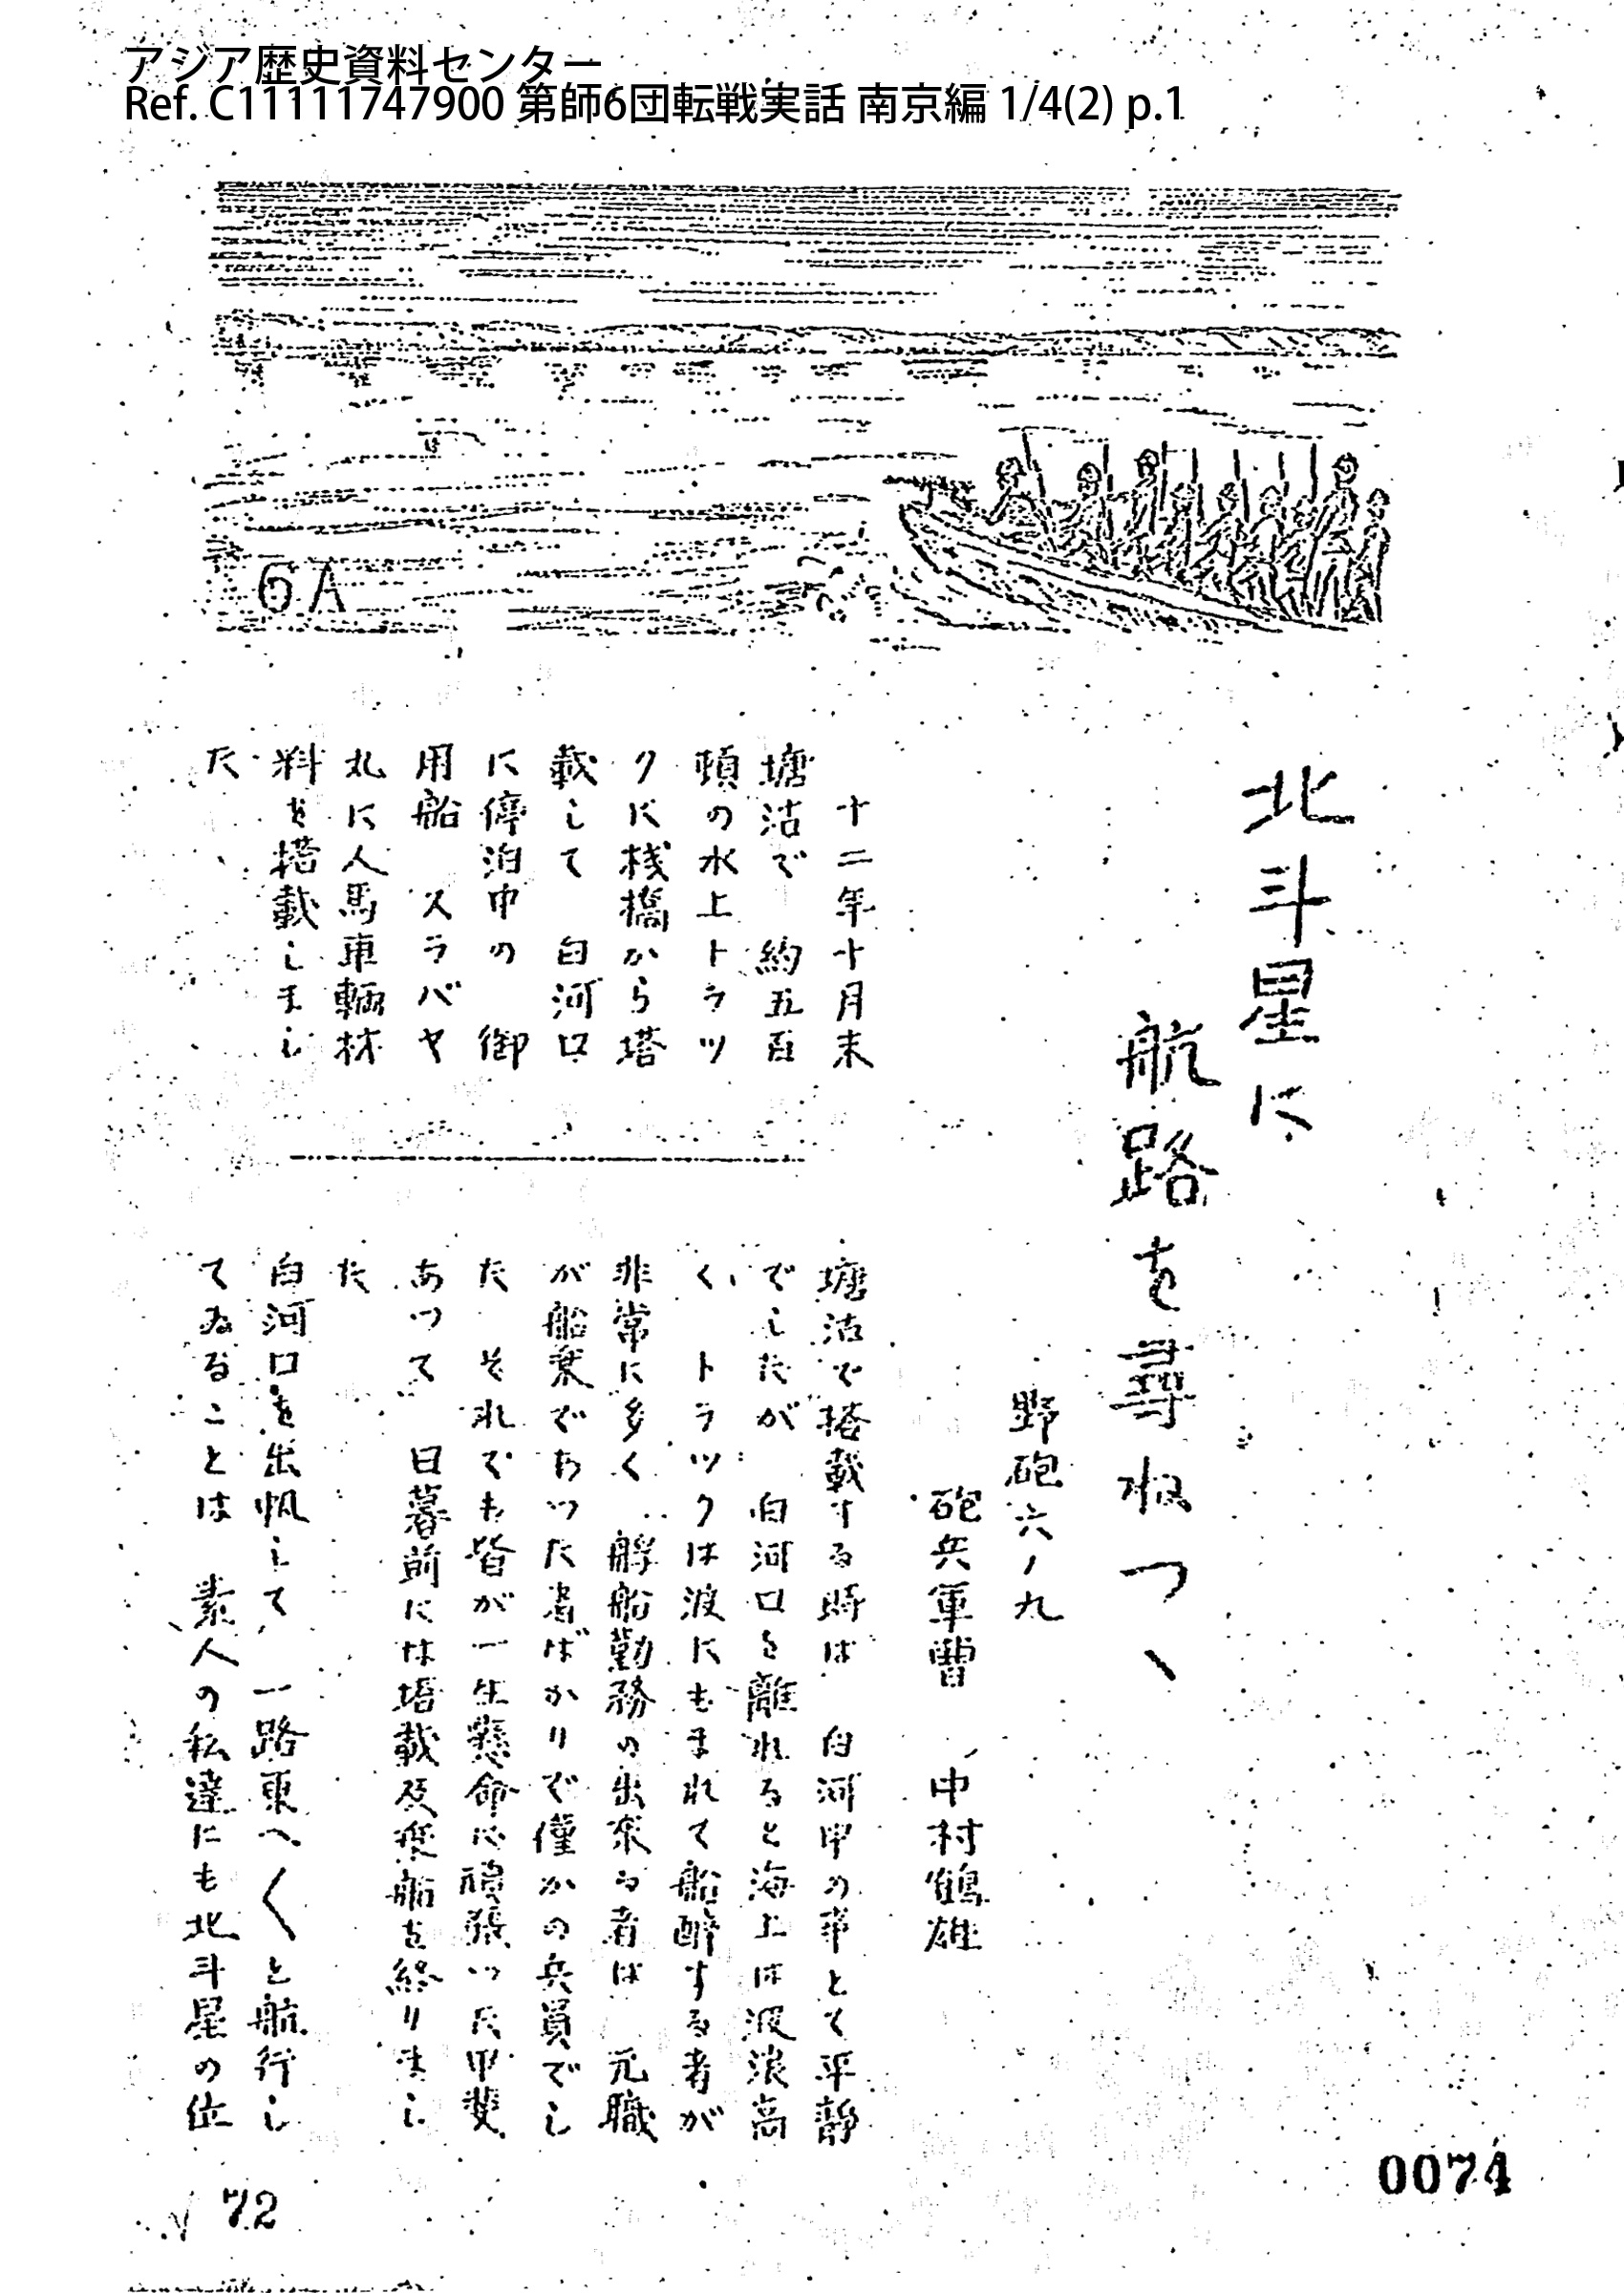 アジア歴史資料センター
Ref. C11111747900 第師6団転戦実話 南京編 1/4(2) p.1
6A
北斗星に
航路を尋ねつヽ
野砲六ノ九
砲兵軍曹 中村鶴雄
十二年十月末
塘沽で 約五百
頓の水上トラツ
クに桟橋から塔
載して 白河口
に停泊中の 御
用船 スラバヤ
丸に人馬車輌材
料を搭載しまし
た、
塘沽で搭載する時は 白河中の事とて平静
でしたが 白河口を離れると海上は波浪高
く、トラツクは波にもまれて船酔する者が
非常に多く 艀船勤務の出来る者は 元職
が船乗であつた者ばかりで僅かの兵員でし
た それでも皆が一生懸命に頑張つた甲斐
あつて 日暮前には塔載及乗船を終りまし
た
白河口を出帆して 一路東へ〱と航行し
てゐることは 素人の私達にも北斗星の位
72
0074